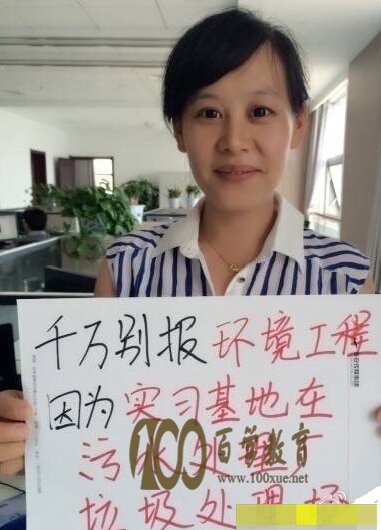 千万别报环境工程
因为实习基地在
污水处理厂
垃圾处理场
100百前教育
www.100xue.net